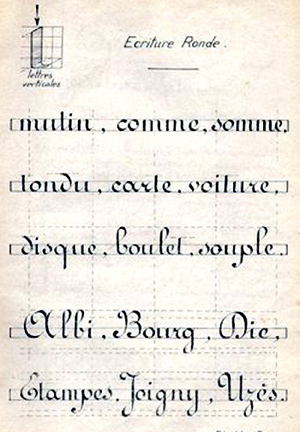 Ecriture Ronde.
lettres
verticales
mutin, comme, somme,
tondu, carte, voiture,
disque, boulet, souple.
Albi, Bourg, Die,
Etampes, Joigny, Uzès.